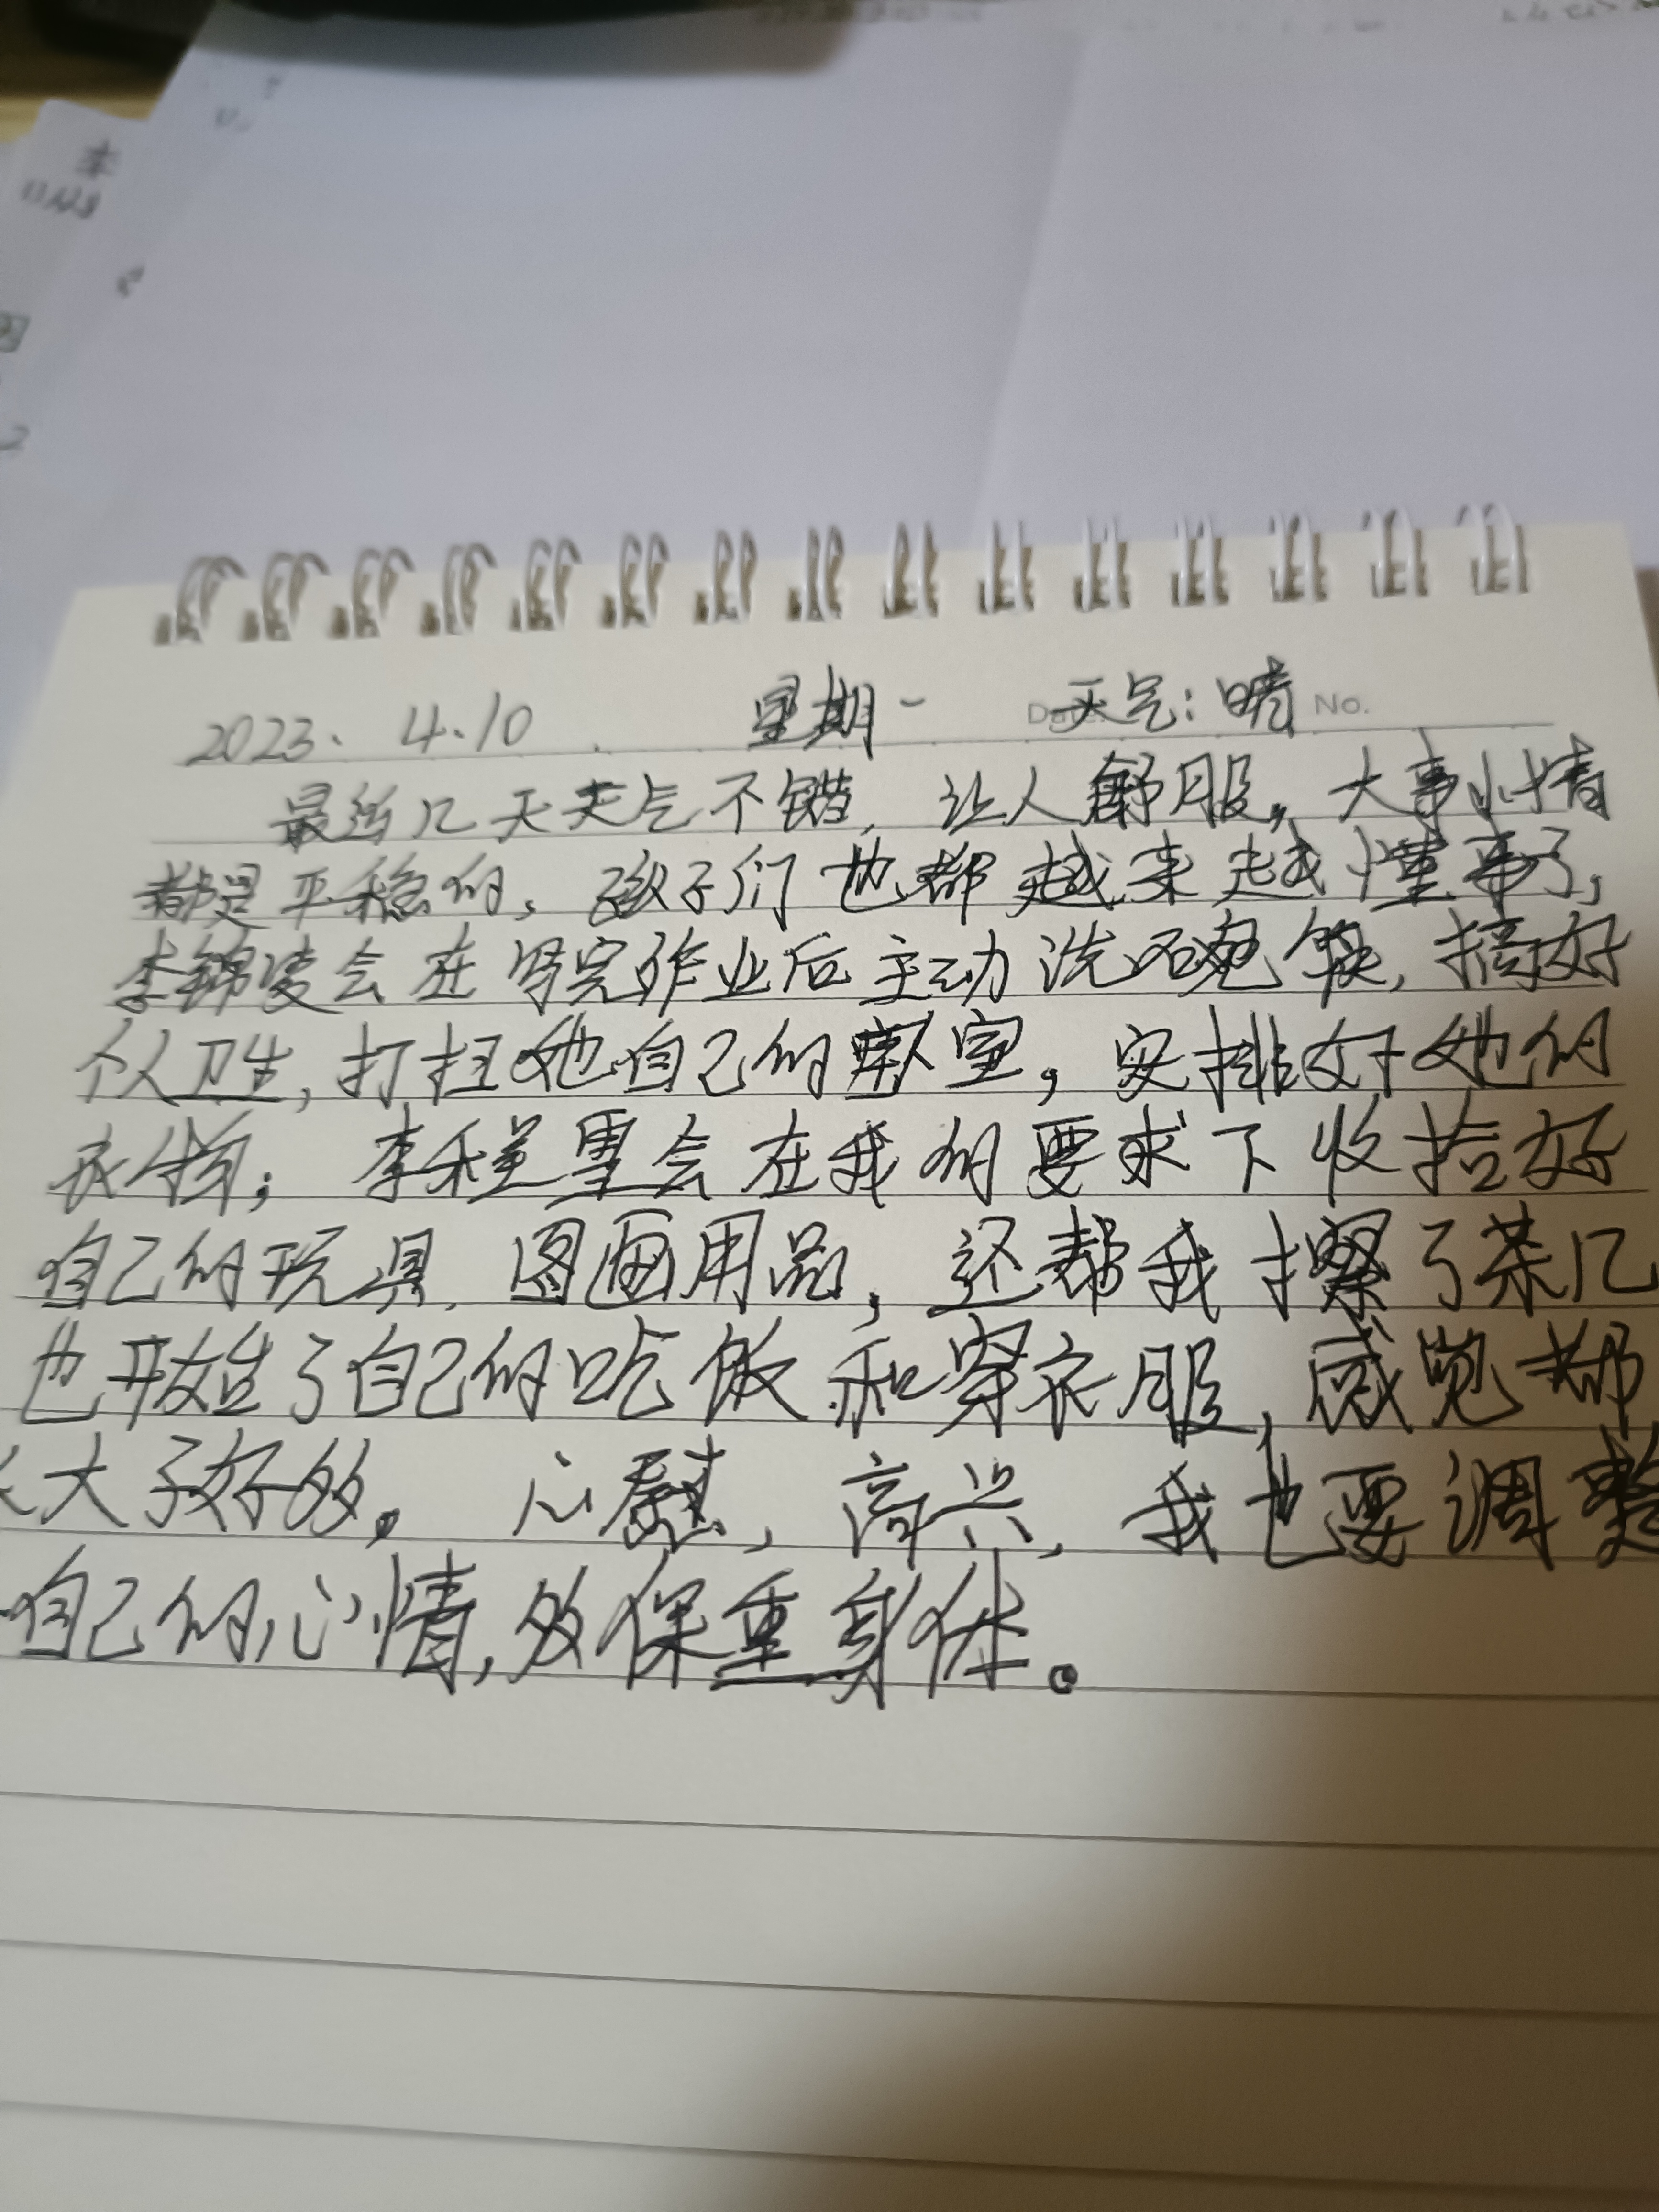 2023. 4.10 星期一 天气:晴 No.
最近几天天气不错,让人舒服。大事小情
都是平稳的。孩子们也都越来越懂事了,
李锦凌会在写完作业后主动洗碗筷,搞好
个人卫生,打扫她自己的卧室,安排好她的
衣物;李程里会在我的要求下收拾好
自己的玩具、图画用品,还帮我擦了茶几
也开始了自己的吃饭和穿衣服,感觉都
长大了好多。心慰,高兴,我也要调整
自己的心情,多保重身体。